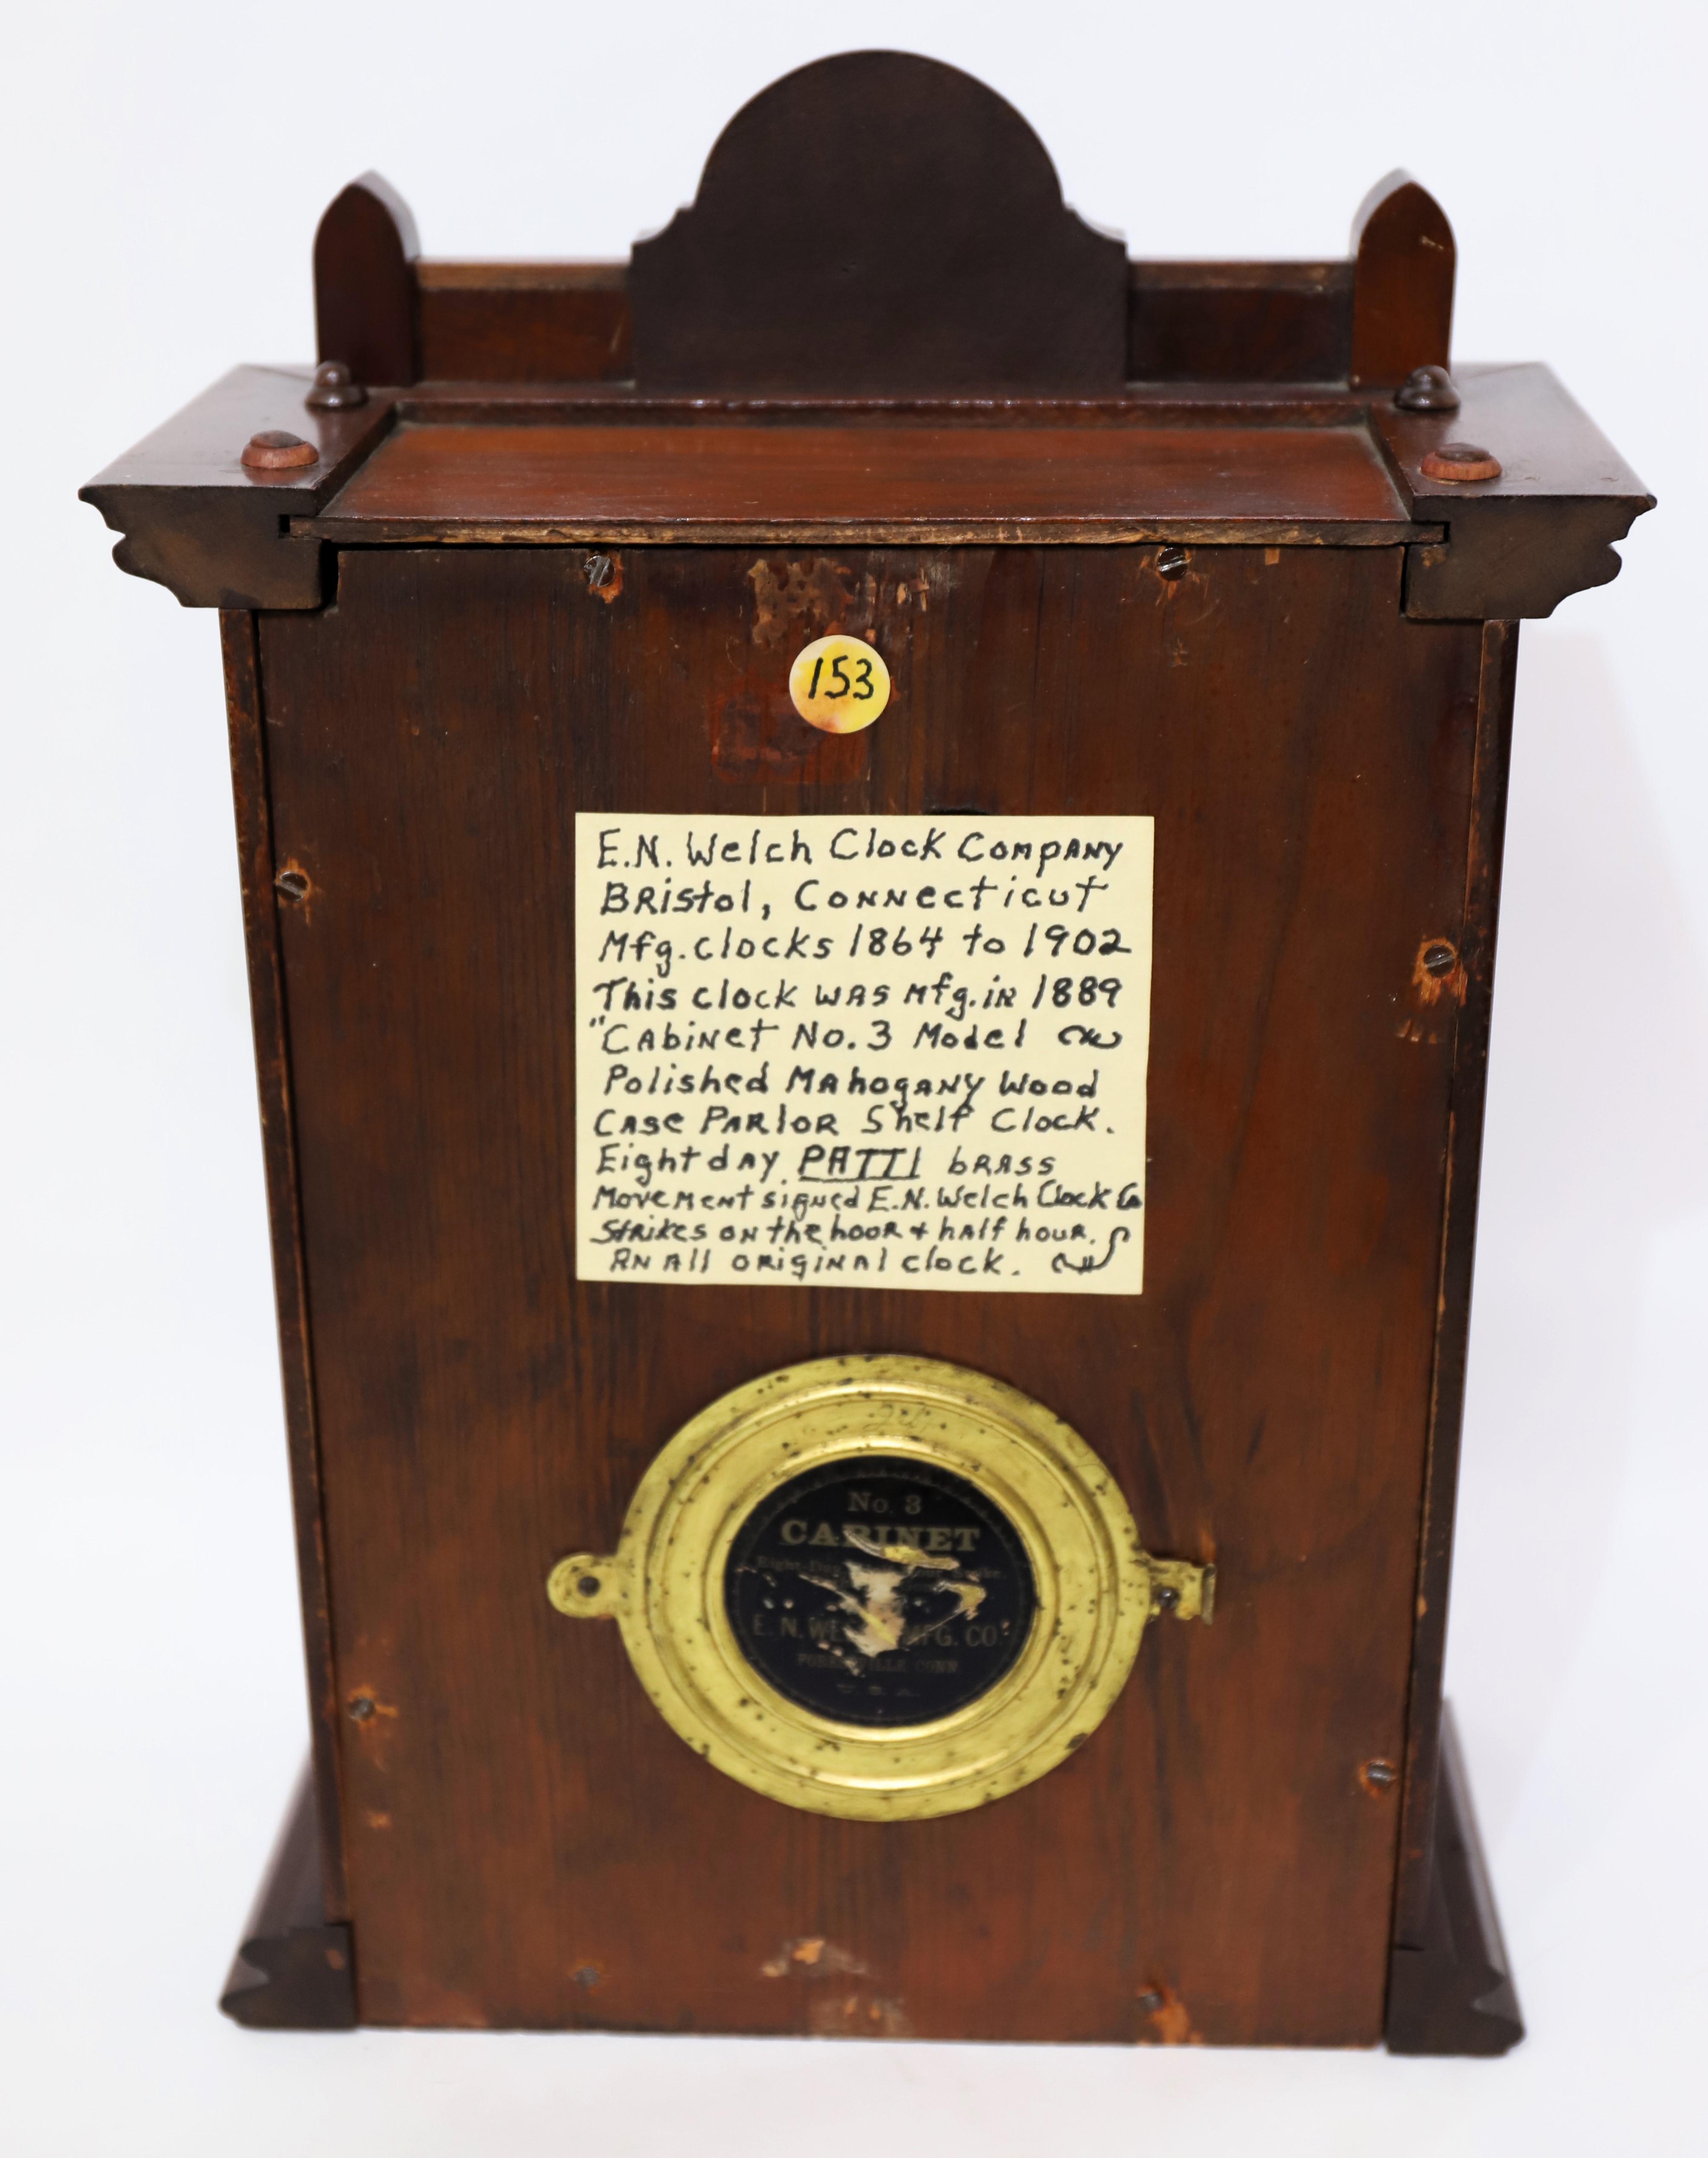 153
E.N. Welch Clock Company
Bristol, Connecticut
Mfg. clocks 1864 to 1902
This clock was mfg. in 1889
"Cabinet No. 3 Model
Polished Mahogany Wood
Case Parlor Shelf Clock.
Eight day PATTI brass
Movement signed E.N. Welch Clock Co
Strikes on the hoor + half hour.
An all original clock.
No. 3
CABINET
E. N. WELCH MFG. CO.
FORESTVILLE CONN.
U. S. A.